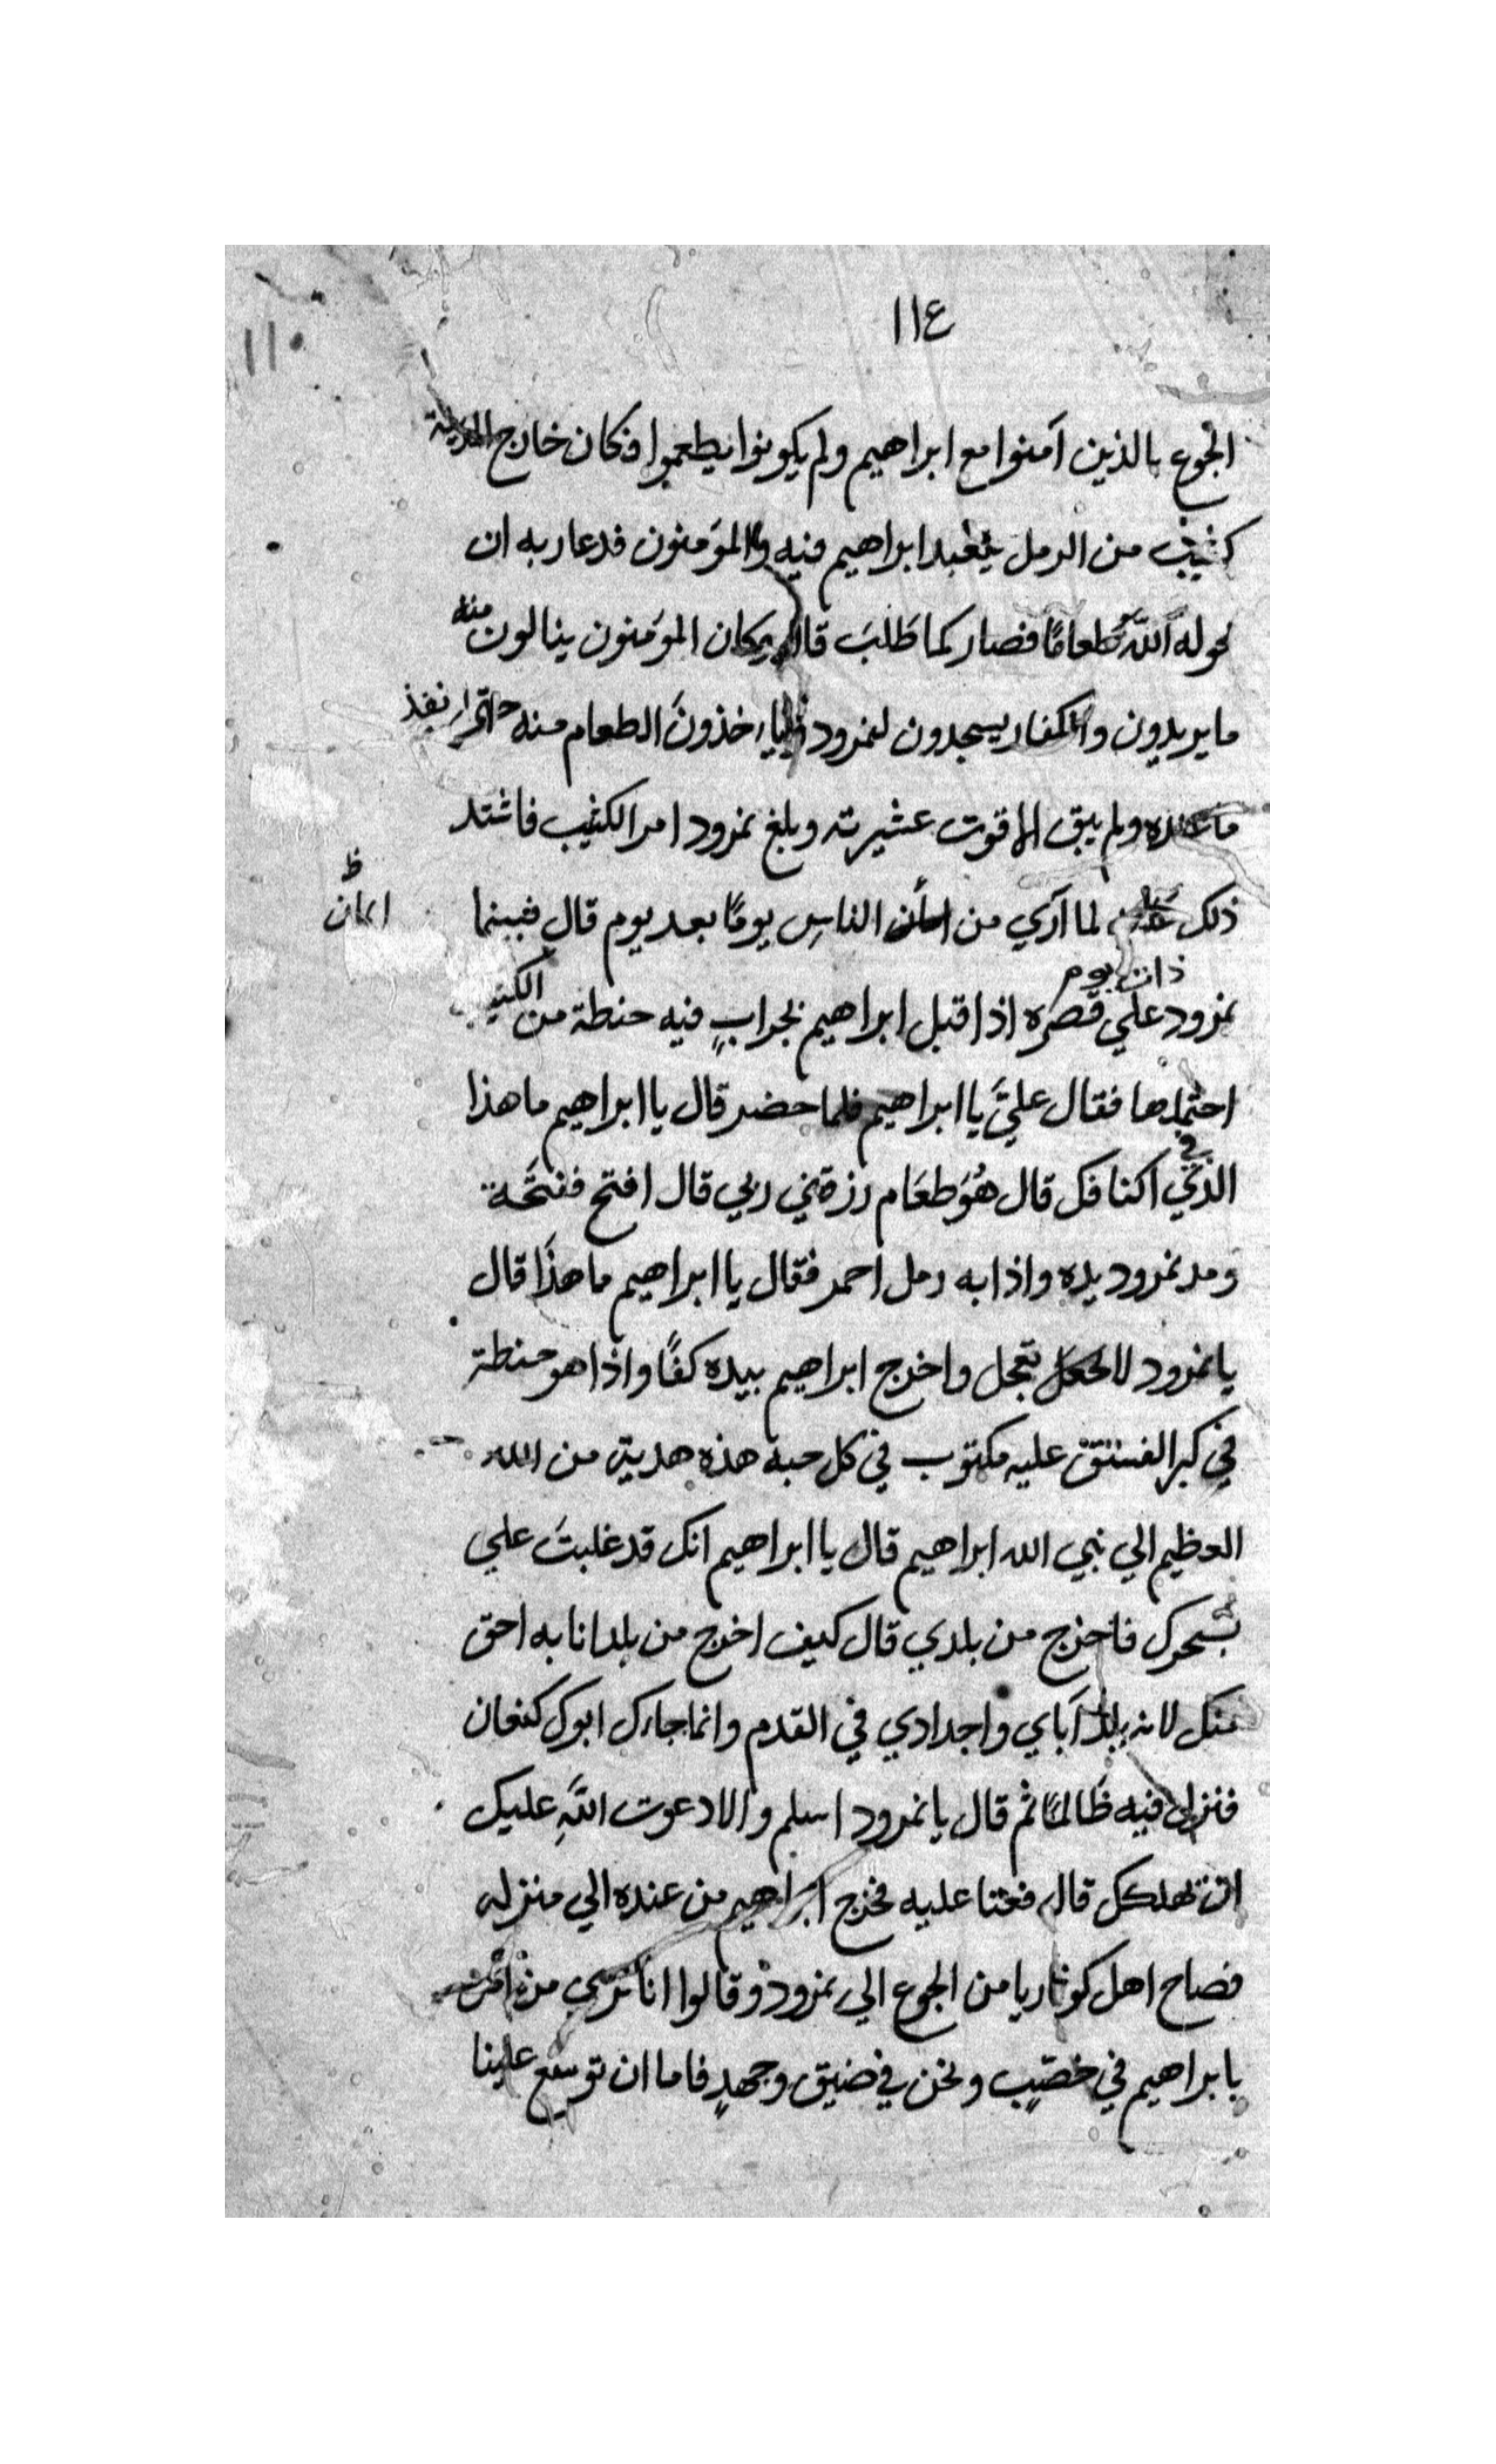 ١١٤
١١٠
الجوع بالذين آمنوا مع ابراهيم ولم يكونوا يطعموا فكان خارج المدينة
كثيب من الرمل يعبد ابراهيم فيه والمؤمنون فدعا ربه ان
يحوله الله طعامًا فصار كما طَلَبَ قال فكان المؤمنون ينالون منه
ما يريدون والكفار يسجدون لنمرود وياخذونَ الطعام منه حتى نفذ
ما عنده ولم يبق الا قوت عشيرته وبلغ نمرود امر الكثيب فاشتد
ذلك عليه لما آري من امان الناسِ يومًا بعد يوم قال فبينما
ايمان
ظ
ذات يوم
نمرود علي قصره اذ اقبل ابراهيم بجرابٍ فيه حنطة من الكثيب
احتملها فقال عليَّ يا ابراهيم فلما حضر قال يا ابراهيم ما هذا
الذي في اكنافك قال هُوَ طعَام رزقني ربي قال افتح ففتحَة
ومد نمرود يده واذا به رمل احمر فقال يا ابراهيم ما هذَا قال
يا نمرود لا تعجل واخرج ابراهيم بيده كفًا واذا هو حنطة
في كبر الفستق عليه مكتوب في كل حبة هذه هدية من الله
العظيم الي نبي الله ابراهيم قال يا ابراهيم انك قد غلبتَ علي
بسحرك فاخرج من بلدي قال كيف اخرج من بلد انا به احق
منك لانه بلد آباي واجدادي في القدم وانما جاءك ابوك كنعان
فنزل فيه ظَالمًا ثم قال يا نمرود اسلم والا دعوت اللَّهِ عليك
ان يهلكك قال فعتا عليه فخرج ابراهيم من عنده الي منزله
فصاح اهل كوثاريا من الجوع الي نمرود وقالوا انا نري من امن
بابراهيم في خصبٍ ونحن في ضيق وجهدٍ فاما ان توسع علينا